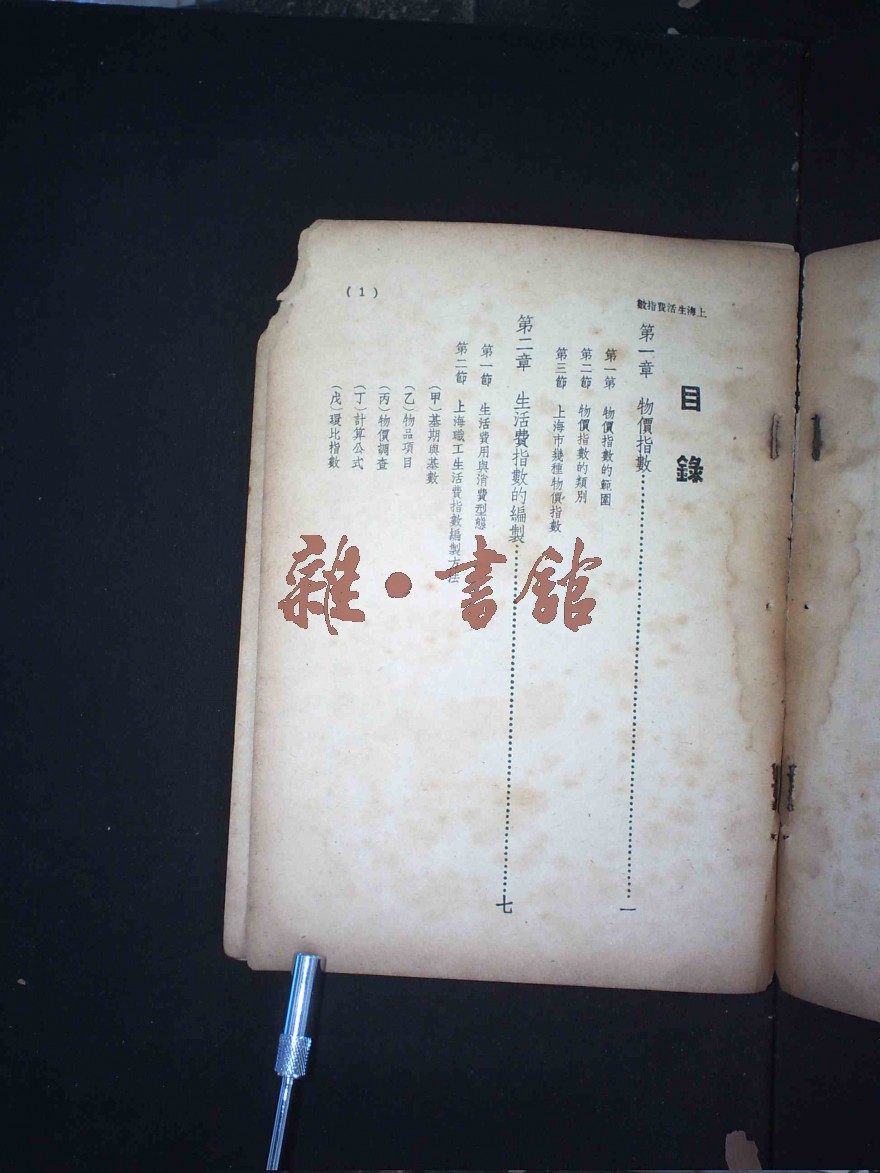 上海生活費指數
目錄
第一章 物價指數……一
第一第 物價指數的範圍
第二節 物價指數的類別
第三節 上海市幾種物價指數
第二章 生活費指數的編製……七
第一節 生活費用與消費型態
第二節 上海職工生活費指數編製方法
(甲)基期與基數
(乙)物品項目
(丙)物價調查
(丁)計算公式
(戊)環比指數
(1)
雜·書館